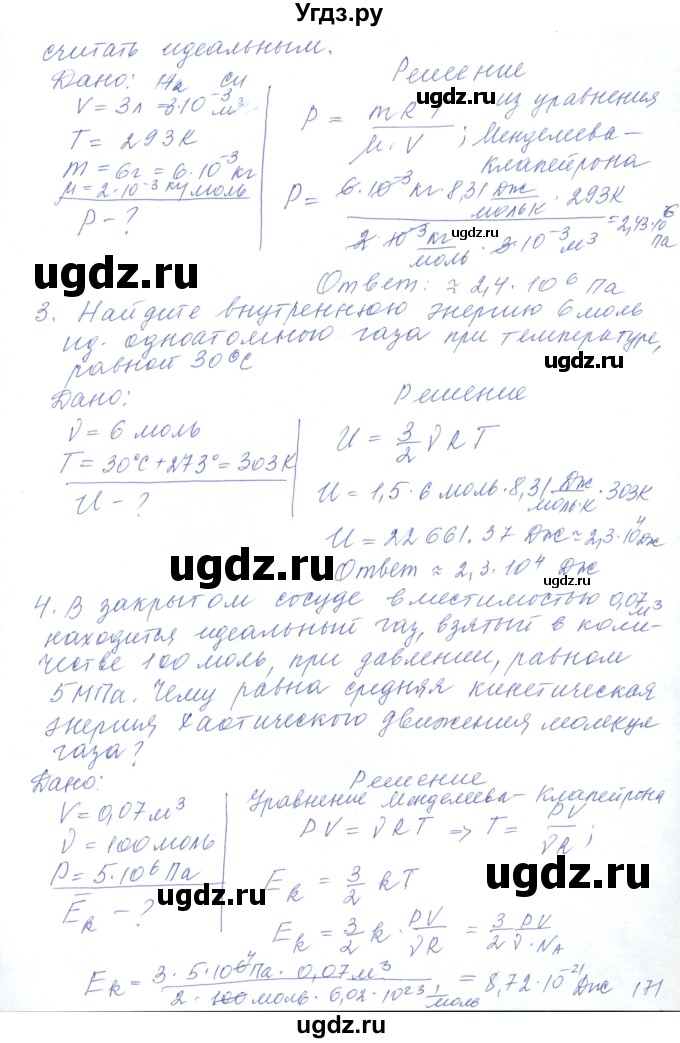 Угдз.ру
считать идеальным.
Дано: H₂ СИ
V = 3л = 3·10⁻³ м³
T = 293К
m = 6г = 6·10⁻³ кг
μ = 2·10⁻³ кг/моль
P - ?
Решение
P = mRT / μ·V ; из уравнения
Менделеева -
Клапейрона
P = 6·10⁻³ кг · 8,31 Дж/моль·К · 293К / 2·10⁻³ кг/моль · 3·10⁻³ м³ = 2,43·10⁶ Па
ugdz.ru
ugdz.ru
ugdz.ru
Ответ: ≈ 2,4·10⁶ Па
3. Найдите внутреннюю энергию 6 моль
ид. одноатомного газа при температуре,
равной 30°С
ugdz.ru
Дано:
ν = 6 моль
T = 30°С + 273° = 303К
U - ?
Решение
ugdz.ru
U = 3/2 νRT
U = 1,5 · 6 моль · 8,31 Дж/моль·К · 303К
U = 22 661.37 Дж ≈ 2,3·10⁴ Дж
Ответ ≈ 2,3·10⁴ Дж
ugdz.ru
ugdz.ru
4. В закрытом сосуде вместимостью 0,07 м³
находится идеальный газ, взятый в коли-
честве 100 моль, при давлении, равном
5 МПа. Чему равна средняя кинетическая
энергия хаотического движения молекул
газа?
ugdz.ru
Дано:
V = 0,07 м³
ν = 100 моль
P = 5·10⁶ Па
E̅k - ?
Решение
Уравнение Менделеева - Клапейрона
PV = νRT => T = PV/νR ;
ugdz.ru
Ek = 3/2 kT
Ek = 3/2 k · PV/νR = 3/2 PV/ν·NA
Ek = 3·5·10⁶⁴ Па · 0,07 м³ / 2·100 моль · 6,02·10²³ 1/моль = 8,72·10⁻²¹ Дж
171
ugdz.ru
ugdz.ru